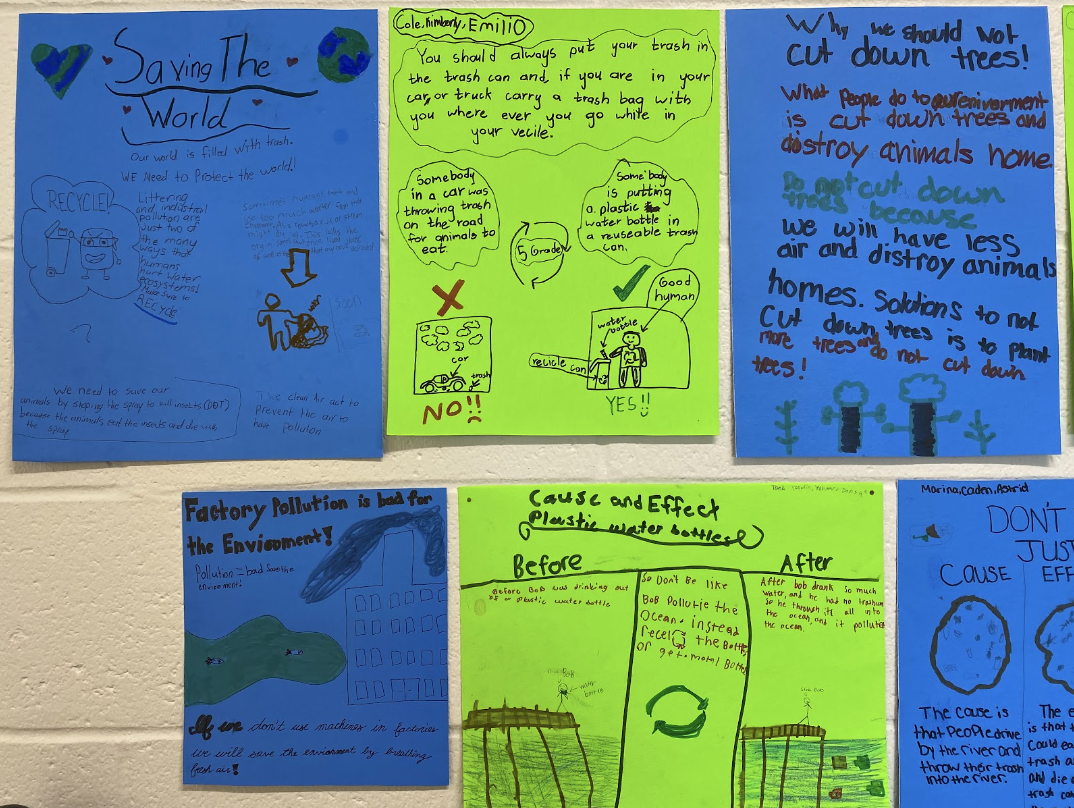 Saving The
World
Our world is filled with trash.
WE Need to Protect the world!
RECYCLE!
Littering
and industrial
pollution are
Just two of
the many
ways that
humans
hurt water
ecosystems!
Make sure to
RECYCLE
We need to save our
animals by stoping the spray to kill insects (DDT)
because the animals eat the insects and die with
the spray
The clean air act to
prevent the air to
have pollution
Cole, Kimberly, EMILIO
You should always put your trash in
the trash can and, if you are in your
car, or truck carry a trash bag with
you where ever you go while in
your vecile.
Somebody
in a car was
throwing trash
on the road
for animals to
eat.
5 Grade
Some body
is putting
a plastic
water bottle in
a reuseable trash
can.
car
trash
NO!!
Good
human
water
bottle
recicle can
YES!!
Why we should not
cut down trees!
What People do to our enivernment
is cut down trees and
distroy animals home.
Do not cut down
trees because
we will have less
air and distroy animals
homes. Solutions to not
cut down trees is to plant
more trees and do not cut down
trees!
Factory Pollution is bad for
the Enviroment!
Pollution = bad
If we don't use machines in factories
we will save the enviorment by breathing
fresh air!
Cause and Effect
Plastic water bottles
Before
Before Bob was drinking out
of a plastic water bottle
water
bottle
So Don't Be like
Bob Pollutie the
Ocean. instead
recel the Bottle,
or get a metal Bottle
After
After bob drank so much
water, and he had no trashcan
so he through it all into
the ocean, and it pollutes
the ocean.
Marina, Caden, Astrid
DON'T
JUST
CAUSE
EFF
The cause is
that People drive
by the river and
throw their trash
into the river.
The e
is that t
Could ea
trash a
and die o
trash ca